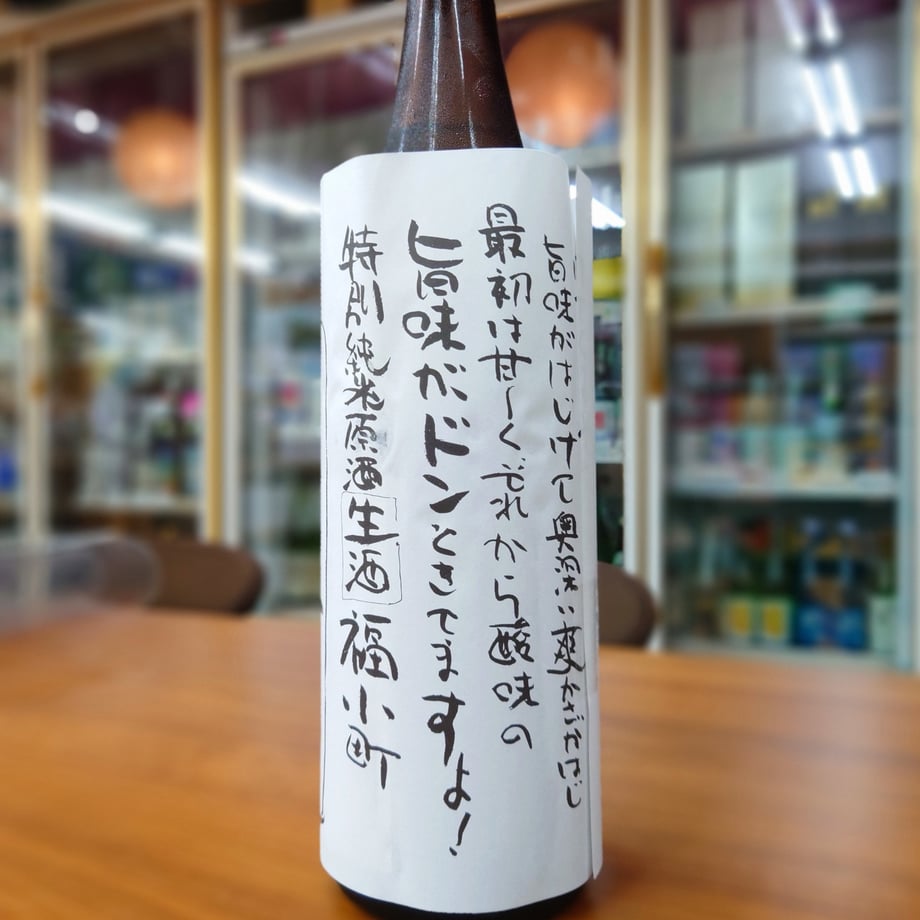 旨味がはじけて奥深い爽かさがはじ
最初は甘〜くそれから酸味の
旨味がドンときてますよ！
特別純米原酒生酒福小町